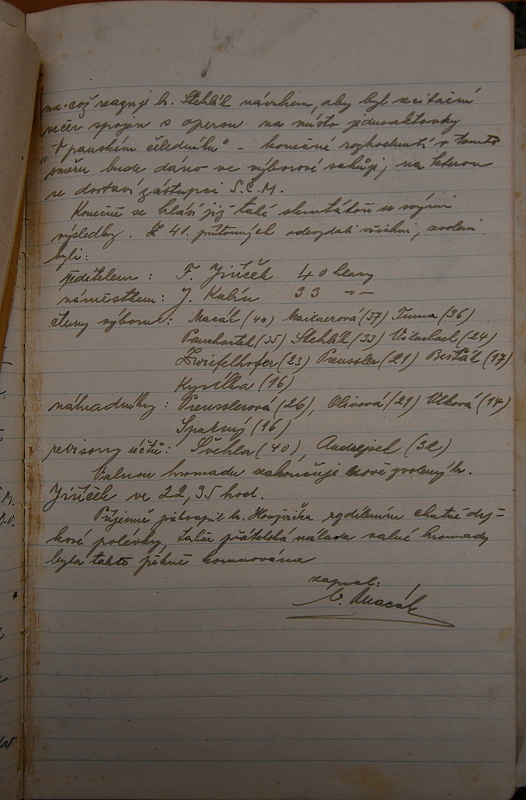 na což reaguje br. Stehlík návrhem, aby byl recitační
večer spojen s operou na místo jednoaktovky
"V panském čeledníku" - konečné rozhodnutí v tomto
směru bude dáno ve výborové schůzi, na kterou
se dostaví zástupci S.Č.M.
Konečně se hlásí již také skrutátoři se svými
výsledky. Z 41 přítomných odevzdali všichni, zvoleni
byli:
ředitelem: F. Jiříček 40 hlasy
náměstkem: J. Kalín 33 -"-
členy výboru: Macák (40) Maixnerová (37) Tůma (36)
(35) Stehlík (33) (24)
Zwiefelhofer (23) Preussler (21) Bešťák (17)
Kyselka (16)
náhradníky: Preusslerová (26), Olivová (21) Vlková (14)
Spatný (16)
revisory účtů: Švehla (40), Andrejsek (32)
Valnou hromadu zakončuje nově zvolený br.
Jiříček ve 22,35 hod.
Příjemně překvapil br. rozdílením chutné drš-
kové polévky takže přátelská nálada valné hromady
byla takto pěkně korunována
zapsal:
V. Macák